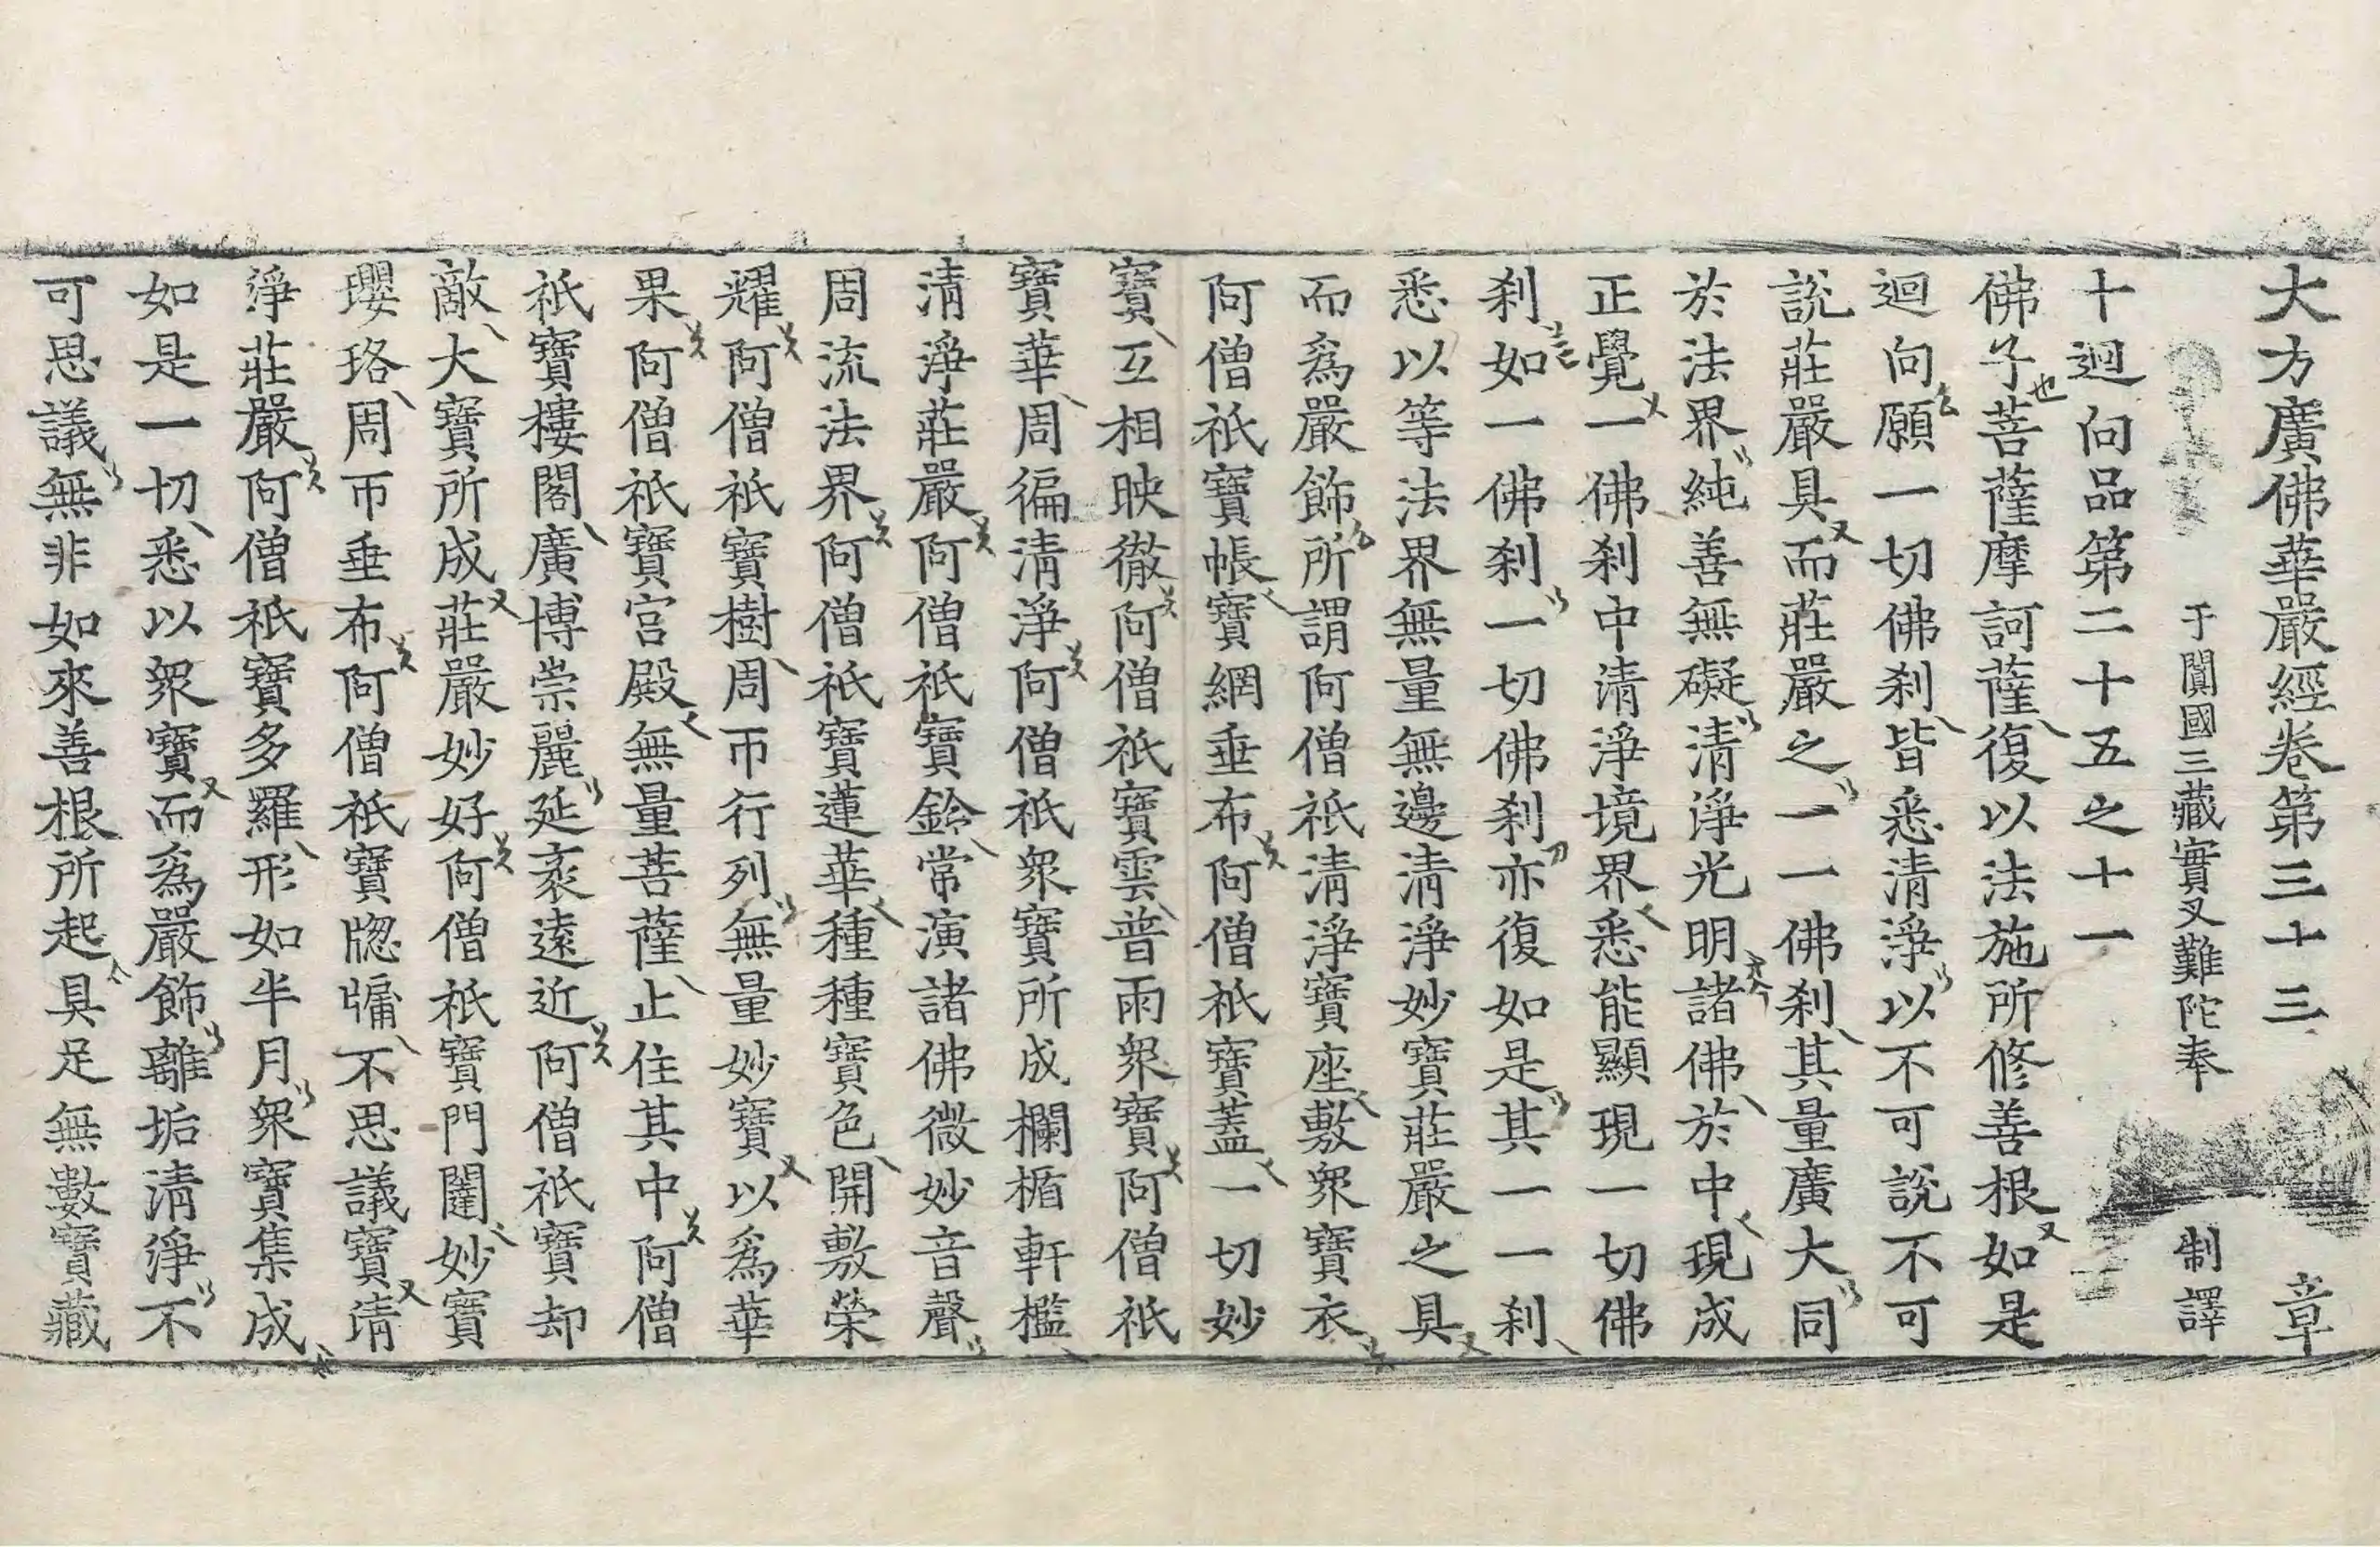 大方廣佛華嚴經卷第三十三 章
于闐國三藏實叉難陀奉 制譯
十迴向品第二十五之十一
佛子菩薩摩訶薩復以法施所修善根如是
迴向願一切佛刹皆悉清淨以不可說不可
說莊嚴具而莊嚴之一一佛刹其量廣大同
於法界純善無礙清淨光明諸佛於中現成
正覺一佛刹中清淨境界悉能顯現一切佛
刹如一佛刹一切佛刹亦復如是其一一刹
悉以等法界無量無邊清淨妙寶莊嚴之具
而爲嚴飾所謂阿僧祇清淨寶座敷衆寶衣
阿僧祇寶帳寶網垂布阿僧祇寶蓋一切妙
寶互相映徹阿僧祇寶雲普雨衆寶阿僧祇
寶華周徧清淨阿僧祇衆寶所成欄楯軒檻
清淨莊嚴阿僧祇寶鈴常演諸佛微妙音聲
周流法界阿僧祇寶蓮華種種寶色開敷榮
耀阿僧祇寶樹周帀行列無量妙寶以爲華
果阿僧祇寶宮殿無量菩薩止住其中阿僧
祇寶樓閣廣博崇麗延袤遠近阿僧祇寶却
敵大寶所成莊嚴妙好阿僧祇寶門闥妙寶
瓔珞周帀垂布阿僧祇寶牎牖不思議寶淸
淨莊嚴阿僧祇寶多羅形如半月衆寶集成
如是一切悉以衆寶而爲嚴飾離垢清淨不
可思議無非如來善根所起具足無數寶藏